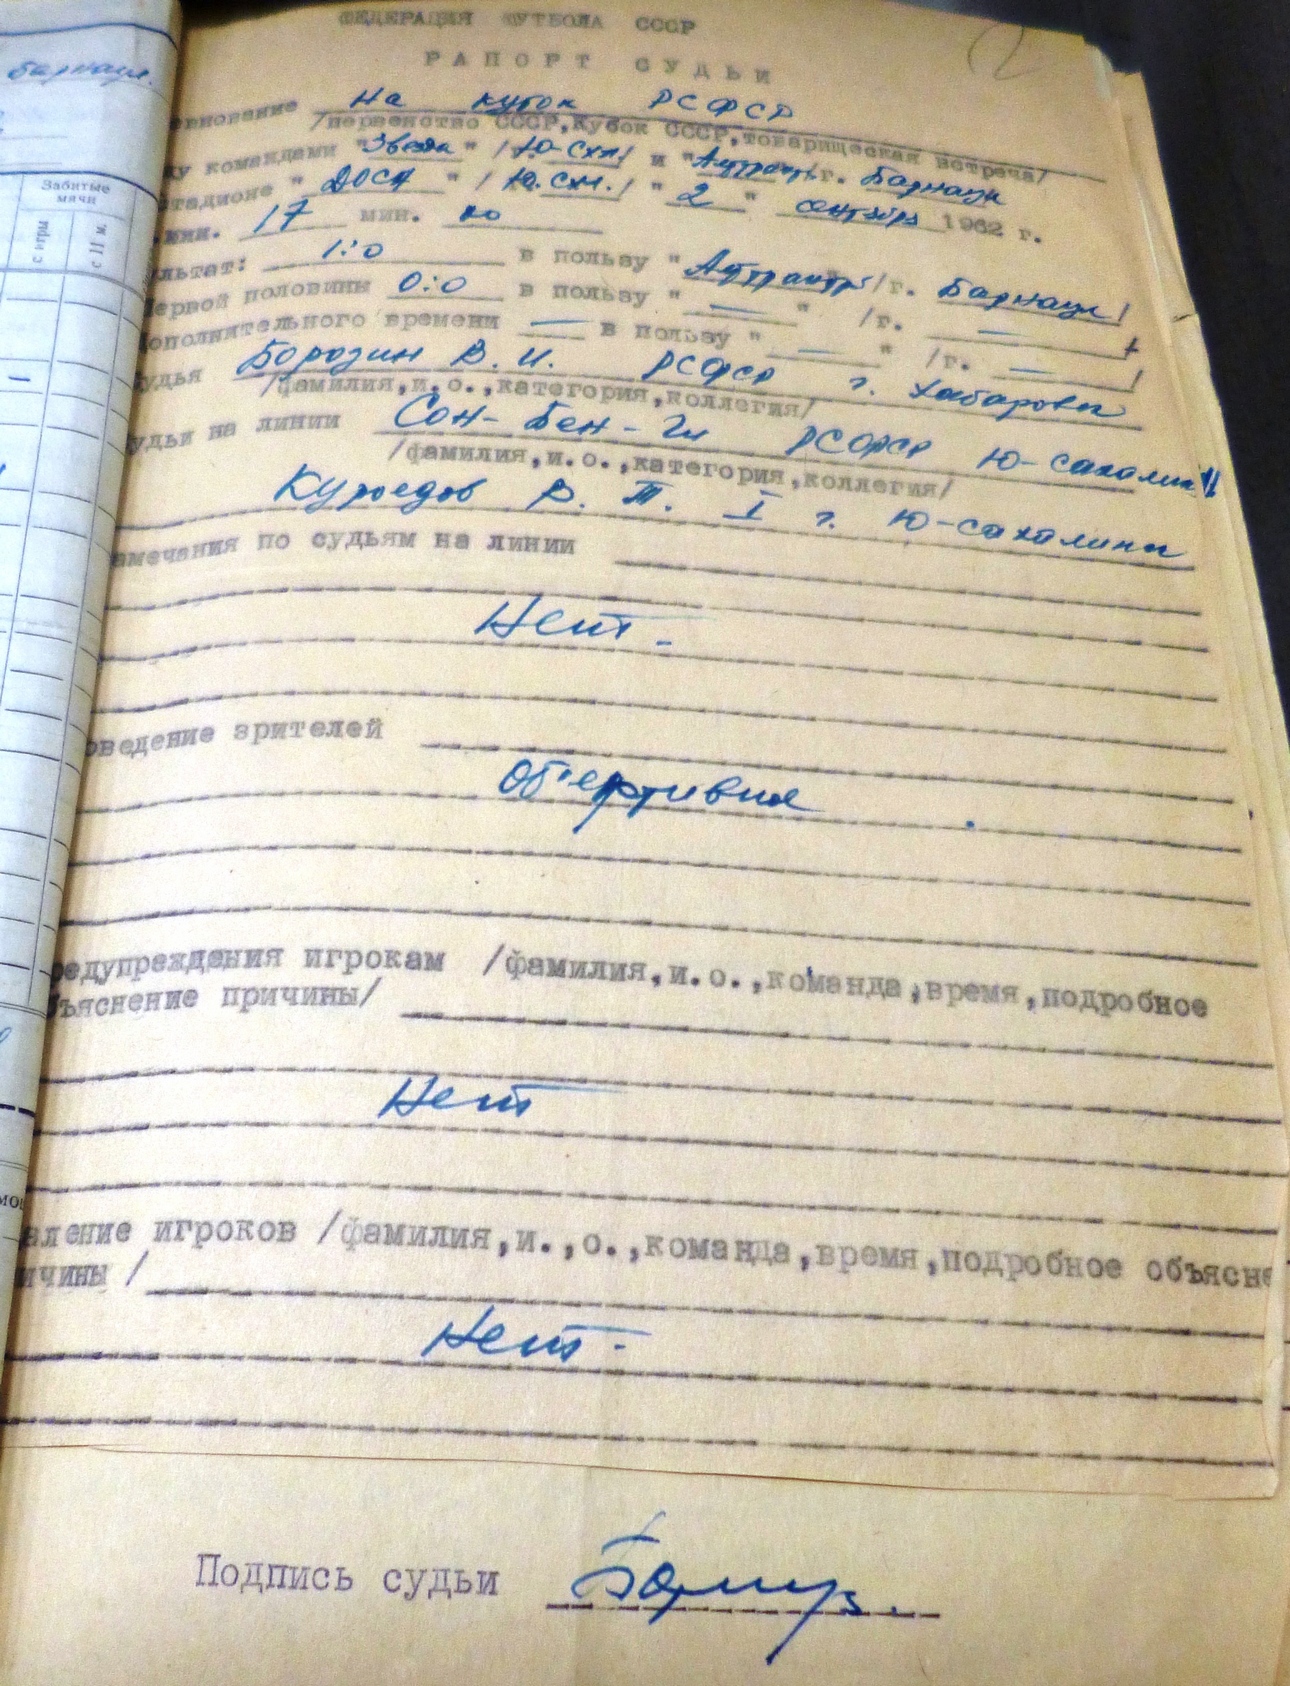 Барнаул.
Забитые
мячи
с игры
с 11 м.
ФЕДЕРАЦИЯ ФУТБОЛА СССР
РАПОРТ СУДЬИ
евнование На кубок РСФСР
/первенство СССР, Кубок СССР, товарищеская встреча/
ду командами "Звезда" / Ю-Схл/ и " /г. Барнаул
стадионе "ДОСА" / Ю.схл./ "2" сентября 1962 г.
17 мин. 00
ультат: 1:0 в пользу " /г. Барнаул/
первой половины 0:0 в пользу " — " /г. —
ополнительного времени — в пользу " — " /г. — /
удья В. И. РСФСР г. Хабаровск
/фамилия, и.о., категория, коллегия/
удьи на линии Сон-Бен- РСФСР Ю-сахалинск
/фамилия, и.о., категория, коллегия/
Куроедов В. Т. I г. Ю-сахалинск
амечания по судьям на линии
Нет.
оведение зрителей
Об'ективная
редупреждения игрокам /фамилия, и.о., команда, время, подробное
бъяснение причины/
Нет
аление игроков /фамилия, и., о., команда, время, подробное объясне
ичины /
Нет.
Подпись судьи